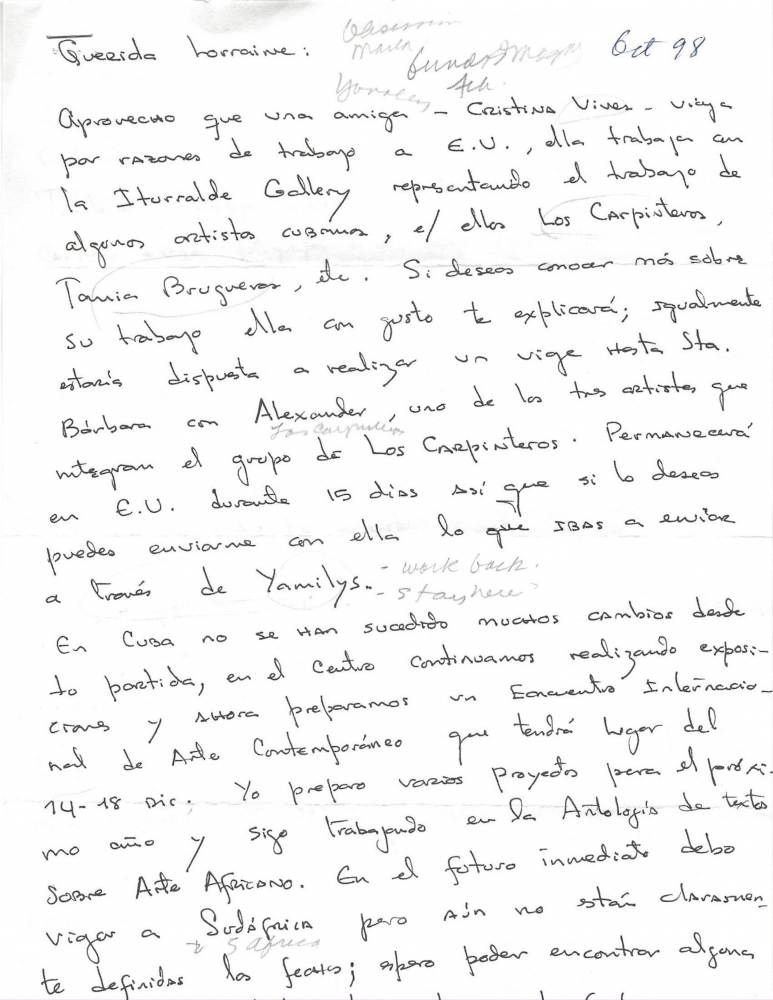 Querida Lorraine: Oct 98
Aprovecho que una amiga - Cristina Vives - viaja
por razones de trabajo a E.U., ella trabaja con
la Iturralde Gallery representando el trabajo de
algunos artistas cubanos, e/ ellos Los Carpinteros,
Tania Brugueras, etc. Si deseas conocer más sobre
su trabajo ella con gusto te explicará; igualmente
estaría dispuesta a realizar un viaje hasta Sta.
Bárbara con Alexander, uno de los tres artistas que
Los Carpinteros
integran el grupo de Los Carpinteros. Permanecerá
en E.U. durante 15 días así que si lo deseas
puedes enviarme con ella lo que ibas a enviar
a través de Yamilys. - work back.
- stay here?
En Cuba no se han sucedido muchos cambios desde
tu partida, en el Centro continuamos realizando exposi-
ciones y ahora preparamos un Encuentro Internacio-
nal de Arte Contemporáneo que tendrá lugar del
14-18 Dic. Yo preparo varios proyectos para el próxi-
mo año y sigo trabajando en la Antología de textos
sobre Arte Africano. En el futuro inmediato debo
viajar a Sudáfrica pero aún no están claramen-
S Africa
te definidas las fechas; espero poder encontrar alguna